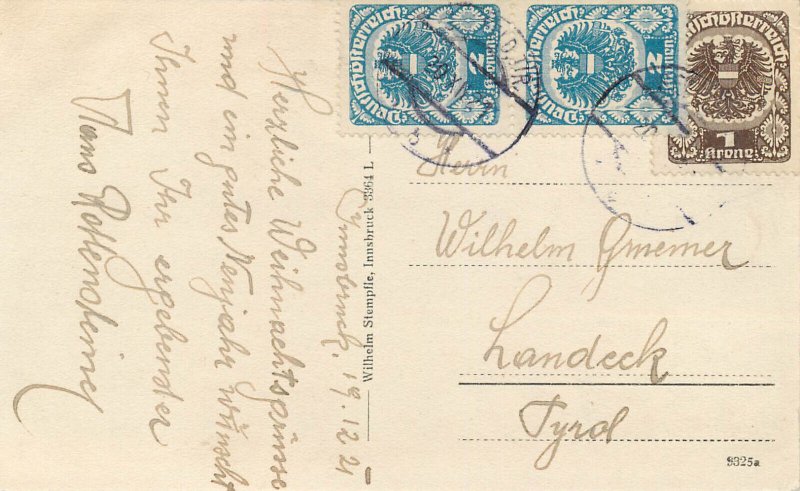 Deutschösterreich
2
Kronen
Deutschösterreich
2
Kronen
Deutschösterreich
1
Krone
Innsbruck, 19.12.21
Herzliche Weihnachtsgrüsse
und ein gutes Neujahr wünscht
Ihnen Ihr ergebender
Herrn
Wilhelm
Landeck
Tyrol
Wilhelm Stempfle, Innsbruck 3364 L
9325a